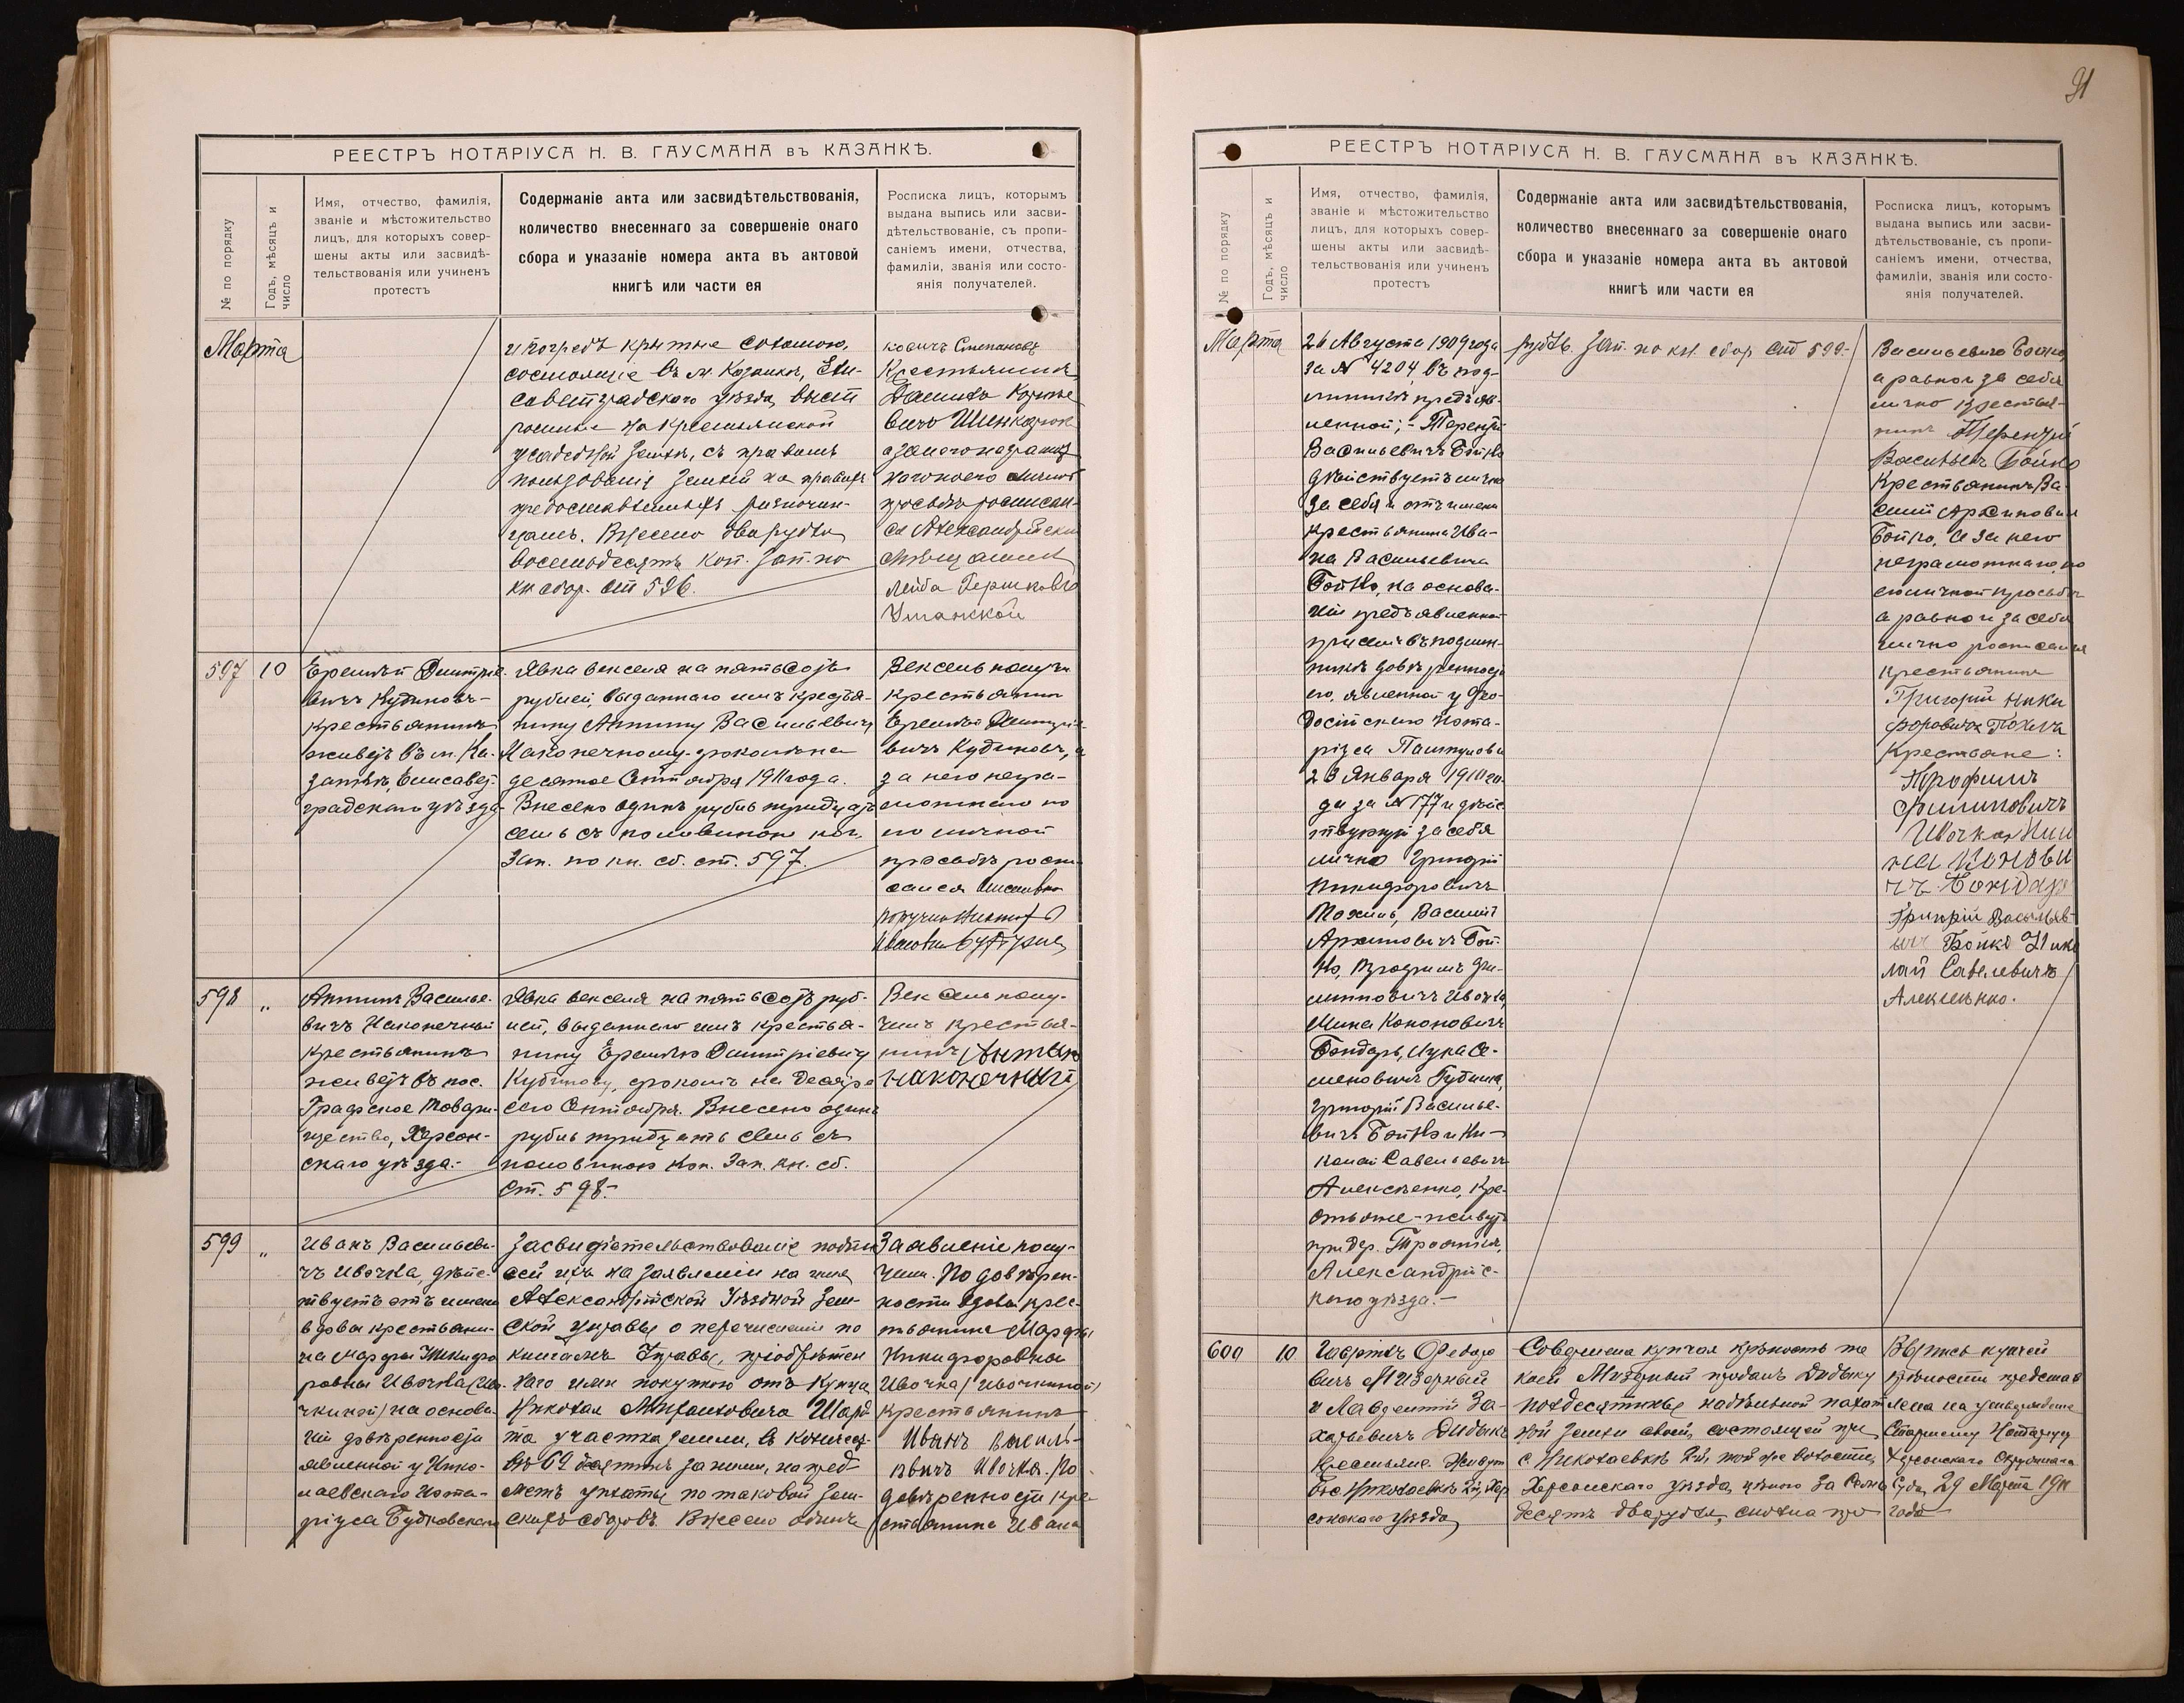 РЕЕСТРЪ НОТАРІУСА Н. В. ГАУСМАНА въ КАЗАНКѢ.
№ по порядку
Годъ, мѣсяцъ и число
Имя, отчество, фамилія,
званіе и мѣстожительство
лицъ, для которыхъ совер-
шены акты или засвидѣ-
тельствованія или учиненъ
протестъ
Содержаніе акта или засвидѣтельствованія,
количество внесеннаго за совершеніе онаго
сбора и указаніе номера акта въ актовой
книгѣ или части ея
Росписка лицъ, которымъ
выдана выпись или засви-
дѣтельствованіе, съ пропи-
саніемъ имени, отчества,
фамиліи, званія или состо-
янія получателей.
Марта
и погребъ крытые соломою,
состоящіе въ м. Казанкѣ, Ели-
саветградскаго уѣзда, выст
роенные на крестьянской
усадебной землѣ, съ правомъ
пользованія землей на правахъ
предоставленныхъ
Внесено два рубля
восемьдесятъ коп. Зап. по
кн. сбор. ст 596.
ковичъ Степановъ
Крестьянинъ
Данило
вичъ Шинкарюк
а за него неграмот
наго по его личной
просьбѣ росписал-
ся Александрійскій
мѣщанинъ
Лейба Гершковъ
Уманскій
597 10
Еремѣй Дмитріе-
вичъ Кудиновъ -
крестьянинъ
живетъ въ м. Ка-
занкѣ, Елисавет-
градскаго уѣзда
Явка векселя на пятьсотъ
рублей, выданнаго имъ крестья-
нину Антипу Васильевичу
Наконечному срокомъ на
десятое Октября 1911 года.
Внесено одинъ рубль тридцать
семь съ половиною коп.
Зап. по кн. сб. ст. 597.
Вексель получи
крестьянинъ
Еремѣй Дмитріе-
вичъ Кудиновъ, а
за него негра-
мотнаго по
его личной
просьбѣ роспи-
сался
598 "
Антипъ Василье-
вичъ Наконечный
крестьянинъ
живетъ въ пос.
Графское Товари-
щество, Херсон-
скаго уѣзда.-
Явка векселя на пятьсотъ руб-
лей, выданнаго имъ крестья-
нину Еремѣю Дмитріевичу
Кудинову, срокомъ на десятое
сего Октября. Внесено одинъ
рубль тридцать семь съ
половиною коп. Зап. кн. сб.
ст. 598.-
Вексель полу-
чилъ крестья-
нинъ Антипъ
наконечный
599 "
Иванъ Василье-
чъ Ивочка, дѣйс-
твуетъ отъ имени
вдовы крестьяни-
на Марфы Никифо
ровны Ивочка (Иво-
чкиной) на основа-
ніи довѣренности
явленной у Нико-
лаевскаго Нота-
ріуса Будковскаго
Засвидѣтельствованіе подпи
сей ихъ на заявленіи на имя
Александрійской Уѣздной Зем-
ской управы о перечисленіи по
книгамъ Управы, пріобрѣтен
наго ими покупкою отъ Купца
Николая
участка земли, въ количест-
вѣ 69 десятинъ за ними, на пред-
метъ уплаты по таковой зем-
скихъ сборовъ. Внесено одинъ
Заявленіе полу-
чили. По довѣрен-
ности вдовы крес-
тьянина Марфы
Никифоровны
Ивочка (Ивочкиной)
крестьянинъ
Иванъ Василь-
евичъ Ивочка. По
довѣренности кре
стьянина Ивана
91
РЕЕСТРЪ НОТАРІУСА Н. В. ГАУСМАНА въ КАЗАНКѢ.
№ по порядку
Годъ, мѣсяцъ и число
Имя, отчество, фамилія,
званіе и мѣстожительство
лицъ, для которыхъ совер-
шены акты или засвидѣ-
тельствованія или учиненъ
протестъ
Содержаніе акта или засвидѣтельствованія,
количество внесеннаго за совершеніе онаго
сбора и указаніе номера акта въ актовой
книгѣ или части ея
Росписка лицъ, которымъ
выдана выпись или засви-
дѣтельствованіе, съ пропи-
саніемъ имени, отчества,
фамиліи, званія или состо-
янія получателей.
Марта
26 Августа 1909 года
за № 4204, въ под-
линникѣ предъяв-
ленной; - Терентій
Васильевичъ Бойко
дѣйствуетъ лично
за себя и отъ имени
крестьянина Ива-
на Васильевича
Бойко, на основа-
ніи предъявленной
при семъ въ подлин-
никѣ довѣренности
его, явленной у Ѳео-
досійскаго Нота-
ріуса
23 Января 1910 го-
да за № 177 и дѣйс
твующій за себя
лично Григорій
Никифоровичъ
Похиль, Василій
Архиповичъ Бой-
ко, Профимъ Фи-
липповичъ Ивочка,
Мина Кононовичъ
Бондарь, Лука Се-
меновичъ
Григорій Василье-
вичъ Бойко и Ни-
колай Савельевичъ
Алексѣенко, кре-
стьяне - живутъ
при дер.
Александрійс-
каго уѣзда.-
рубль. Зап. по кн. сбор ст 599.-
Васильевича Бойко,
а равно и за себя
лично крестья-
нинъ Терентій
Васильевъ Бойко
Крестьянинъ Ва-
силій Архиповичъ
Бойко, а за него
неграмотнаго, по
его личной просьбѣ
а равно и за себя
лично росписался
крестьянинъ
Григорій Ники
форовичъ Похиль
Крестьяне:
Профимъ
Филиповичъ
Ивочка Ми
на Коновы
чъ Бондаръ
Григорій Василіев-
ичъ Бойко Нико
лай Савелевичъ
Алексѣнко.
600 10
Ѳедоро
вичъ Мизерный
и Лаврентій За-
харьевичъ Дидыкъ
Крестьяне. Живутъ
въ с Николаевкѣ 2й, Хер
сонскаго уѣзда
Совершена купчая крѣпость та
коей Мизерный продалъ Дидыку
полдесятины надѣльной пахот
ной земли своей, состоящей при
с. Николаевкѣ 2й, той же волости,
Херсонскаго уѣзда, цѣною за семь
десятъ два рубля,
Выпись купчей
крѣпости представ
лена на утвержденіе
Старшему Нотаріусу
Херсонскаго Окружнаго
Суда, 29 Марта 1911
года